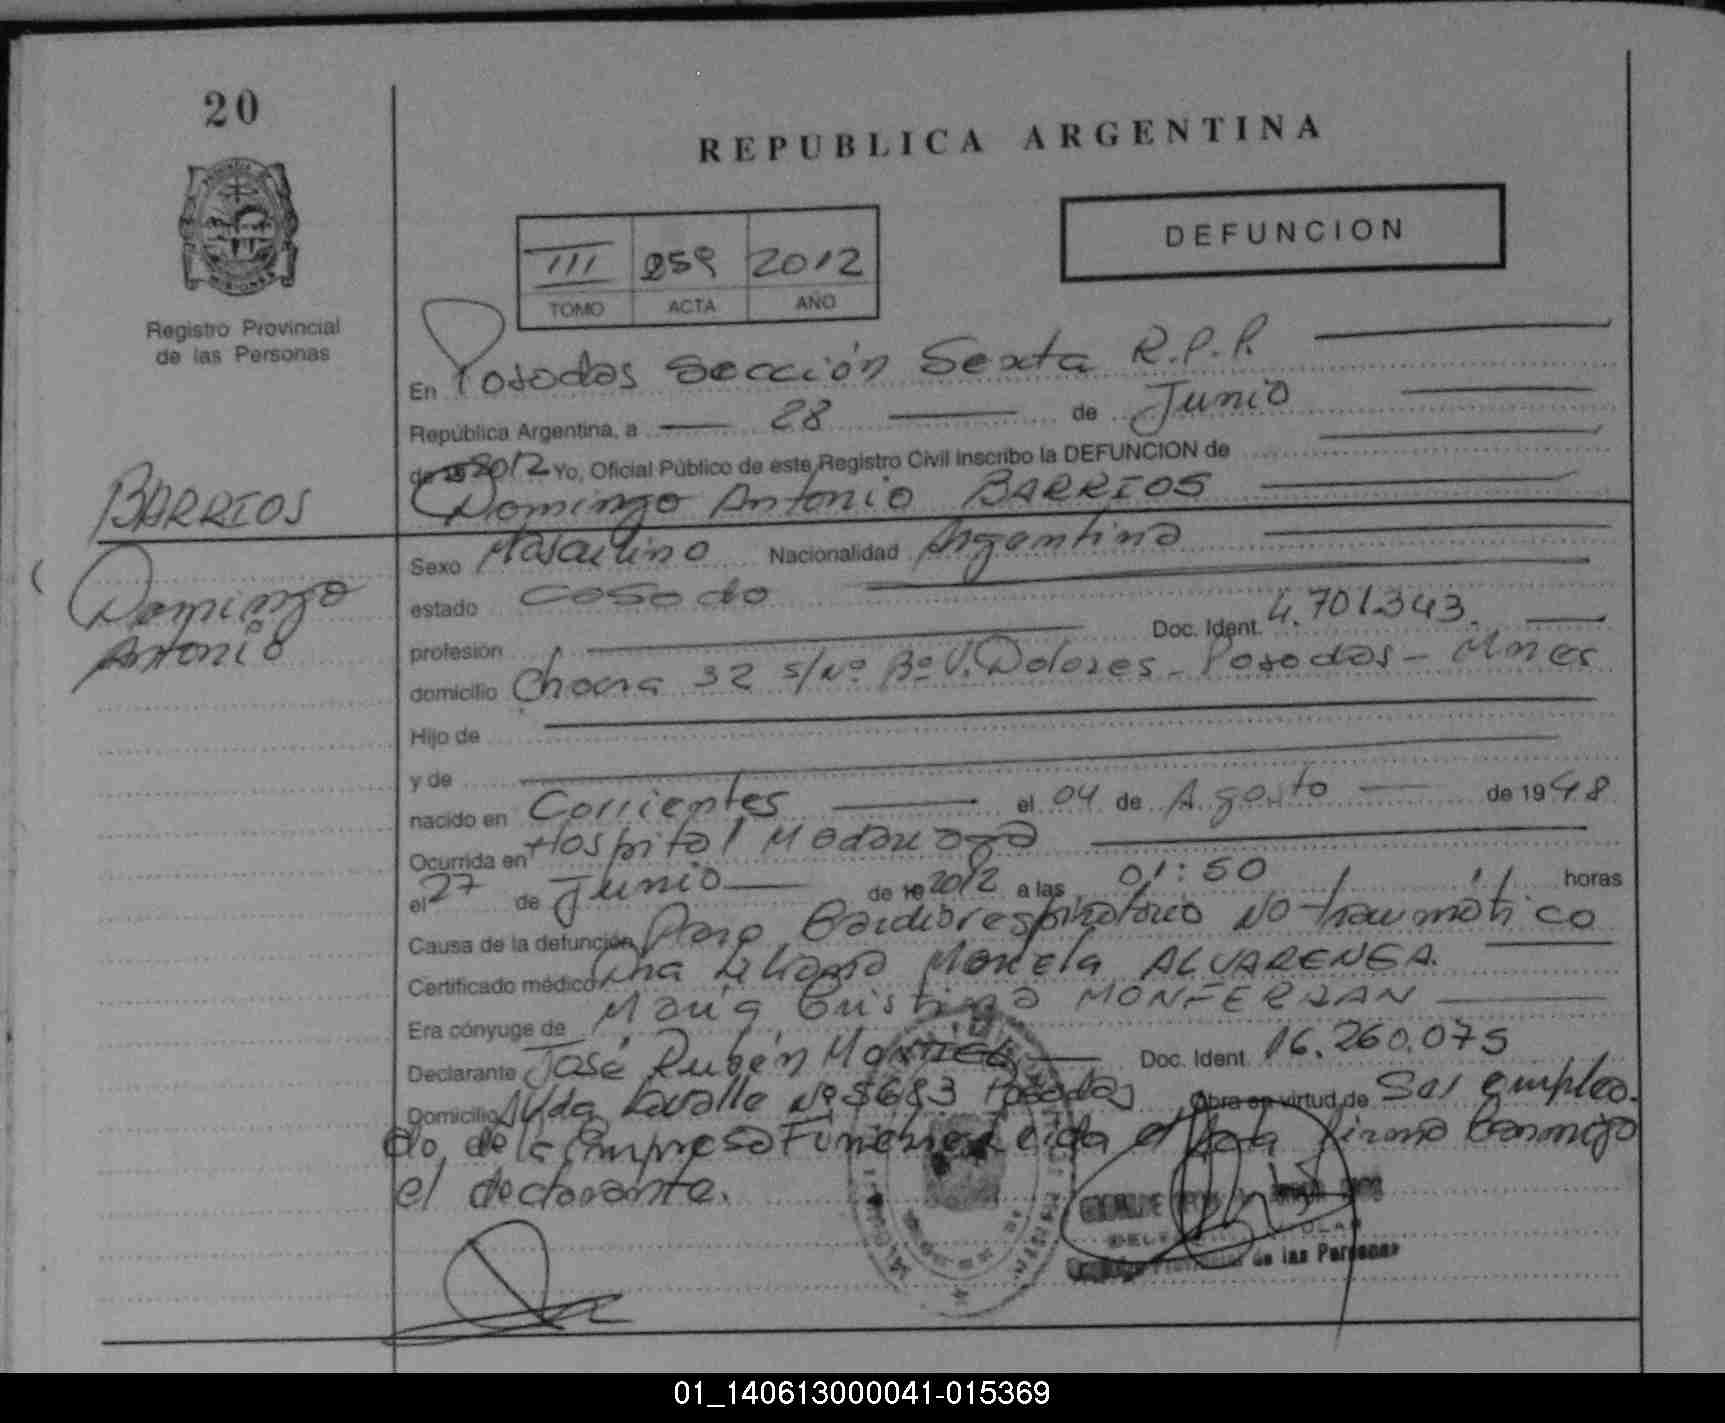 20
REPUBLICA ARGENTINA
DEFUNCION
III 259 2012
TOMO ACTA AÑO
Registro Provincial
de las Personas
En Posadas Sección Sexta R.P.P.
República Argentina, a 28 de Junio
de 19 2012 Yo, Oficial Público de este Registro Civil Inscribo la DEFUNCION de
BARRIOS
Domingo Antonio BARRIOS
Domingo
Antonio
Sexo Masculino Nacionalidad Argentina
estado casado
profesión Doc. Ident. 4.701.343.
domicilio Chacra 32 s/Nº Bº V. Dolores - Posadas - Mnes
Hijo de
y de
nacido en Corrientes el 04 de Agosto de 1948
Ocurrida en Hospital Madariaga
el 27 de Junio de 19 2012 a las 01:50 horas
Causa de la defunción Paro Cardiorespiratorio No traumático
Certificado médico Liliana Mariela ALVARENGA.
Era cónyuge de María Cristina MONFERRAN
Declarante José Rubén Doc. Ident. 16.260.075
Domicilio Avda Lavalle Nº 5683 Posadas Obra en virtud de Ser emplea-
do de la Empresa Funebre Leida el Acta firma Conmigo
el declarante.
de las Personas
01_140613000041-015369